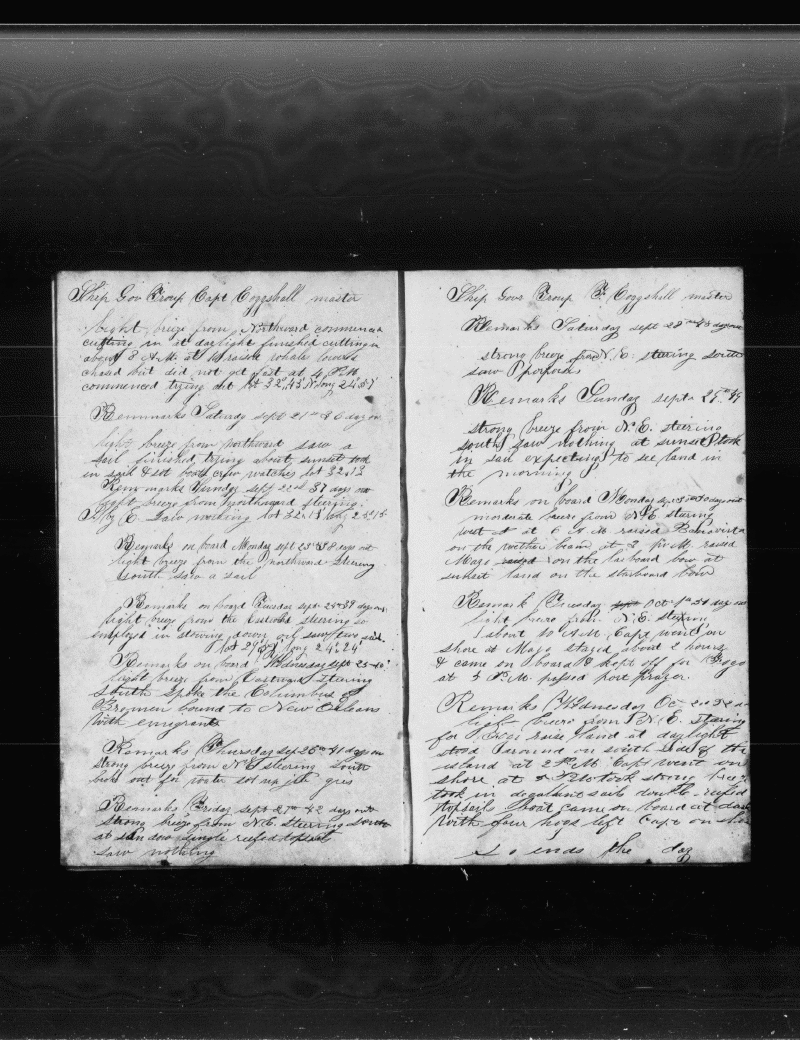 Ship Gov Troup Capt Coggshall master
light breeze from Northward commenced
cutting in at daylight finished cutting in
about 8 A.M. at raised whales lowered
chased but did not get fast at 4 P.M.
commenced trying out lat 32,45 N long 24,57
Remmarks Saturday sept 21st 36 days out
light breeze from Northward saw a
sail finished trying about sunset took
in sail & set boats crew watches lat 32.13
Remmarks Sunday sept 22nd 37 days out
light breeze from Northward steering
S by E. Saw nothing lat 32.13 long 25.15
Remarks on board Monday sept 23rd 38 days out
light breeze from the northward steering
South saw a sail
Remarks on board Tuesday sept 24th 39 days out
light breeze from the Eastward steering so
employed in stowing down oil saw two sail
lat 29 long 24,24
Remarks on board Wednesday sept 25 40
light breeze from Eastward steering
South spoke the Columbus of
Bremen bound to New Orleans
With emigrants
Remarks Thursday sep 26th 41 days out
strong breeze from N.E steering South
broke out for water set up jib guys
Remarks Friday sept 27th 42 days out
strong breeze from N.E. steering South
at sun down single reefed topsails
saw nothing
Ship Gov Troup F Coggshall master
Remarks Saturday sept 28th 43 days out
strong breeze from N.E. steering south
saw porpoises
Remarks Sunday septr 29th 49
strong breeze from N.E. steering
south saw nothing at sunset took
in sail expecting to see land in
the morning
Remarks on board Monday days out
moderate breeze from N.E. steering
west at 6 A.M. raised Bonavista
on the weather beam at 3 P.M. raised
Mayo on the larboard bow at
sunset land on the starboard bow
Remark Tuesday Oct 1st days out
light breeze from N.E. steering
about 10 A.M. Capt went on
shore at Mayo stayed about 2 hours
& came on board & kept off for
at 5 P.M. passed port prayer.
Remarks Wednesday Oct 2nd
light breeze from N.E. steering
for raised land at daylight
stood around on south side of the
island at 2 P.M. Capt went on
shore at took strong breeze
took in topgallant sails double reefed
topsails boat came on board at dark
With four hogs left Capt on shore
So ends the day